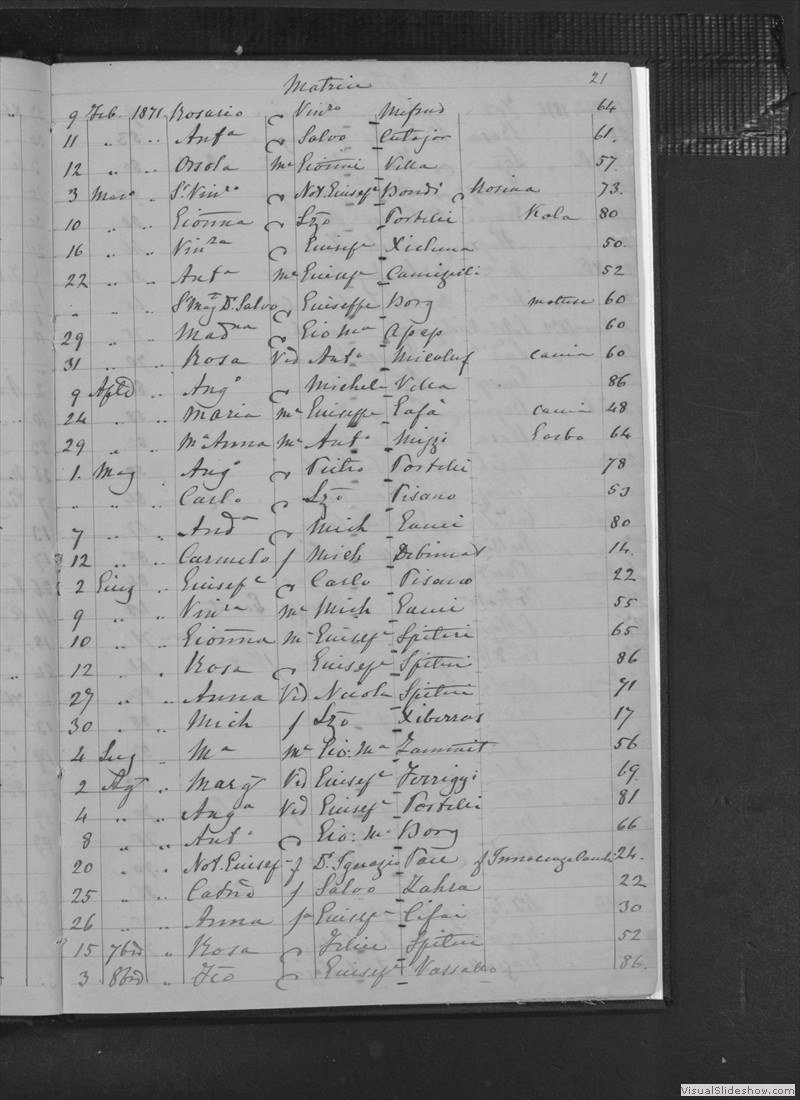 Matrice 21
9 Feb. 1871. Rosario Vinzo Mifsud 64
11 " " Anta Salvo Cutajar 61.
12 " " Orsola Me Gionni Villa 57
3 Marzo " Sr Vinzo Not. Giusepe Bondi Rosina 73.
10 " " Gionna Lzo Portelli Kola 80
16 " " Vinza Giusepe Xicluna 50.
22 " " Anta me Giusepe Camizuli 52
" " Salvo Giuseppe Borg 60
29 " " Madna Gio Ma Apap 60
31 " " Rosa Vid Anto Micallef 60
9 Aple " Ango Michel Vella 86
24 " " Maria Me Giuseppe 48
29 " " Ma Anna Me Anto Mizzi 64
1. Mag " Ango Pietro Portelli 78
" " Carlo Lzo Pisano 53
7 " " Anda Mich Gauci 80
12 " " Carmelo f Mich 14.
2 Giug " Giusepe Carlo Pisano 22
9 " " Vinza Me Mich Gauci 55
10 " " Gionna Me Giusepe Spiteri 65
12 " " Rosa Giusepe Spiteri 86
27 " " Anna Vid Nicola Spiteri 71
30 " " Mich f Lzo Xiberras 17
4 Lug " Ma Me Gio: Ma Zammit 56
2 Agt " Margt Vid Giusepe Forrigyi 69
4 " " Anga Vid Giusepe Portelli 81
8 " " Anto Gio: Ma Borg 66
20 " " Not. Giusepe f Dr Ignazio Pace f Innocenza 24.
25 " " Catne f Salvo Zahra 22
26 " " Anna fa Giusepe Cifai 30
15 7bre " Rosa Felice Spiteri 52
3 8bre " Fco Giusepe Vassallo 86.
VisualSlideshow.com